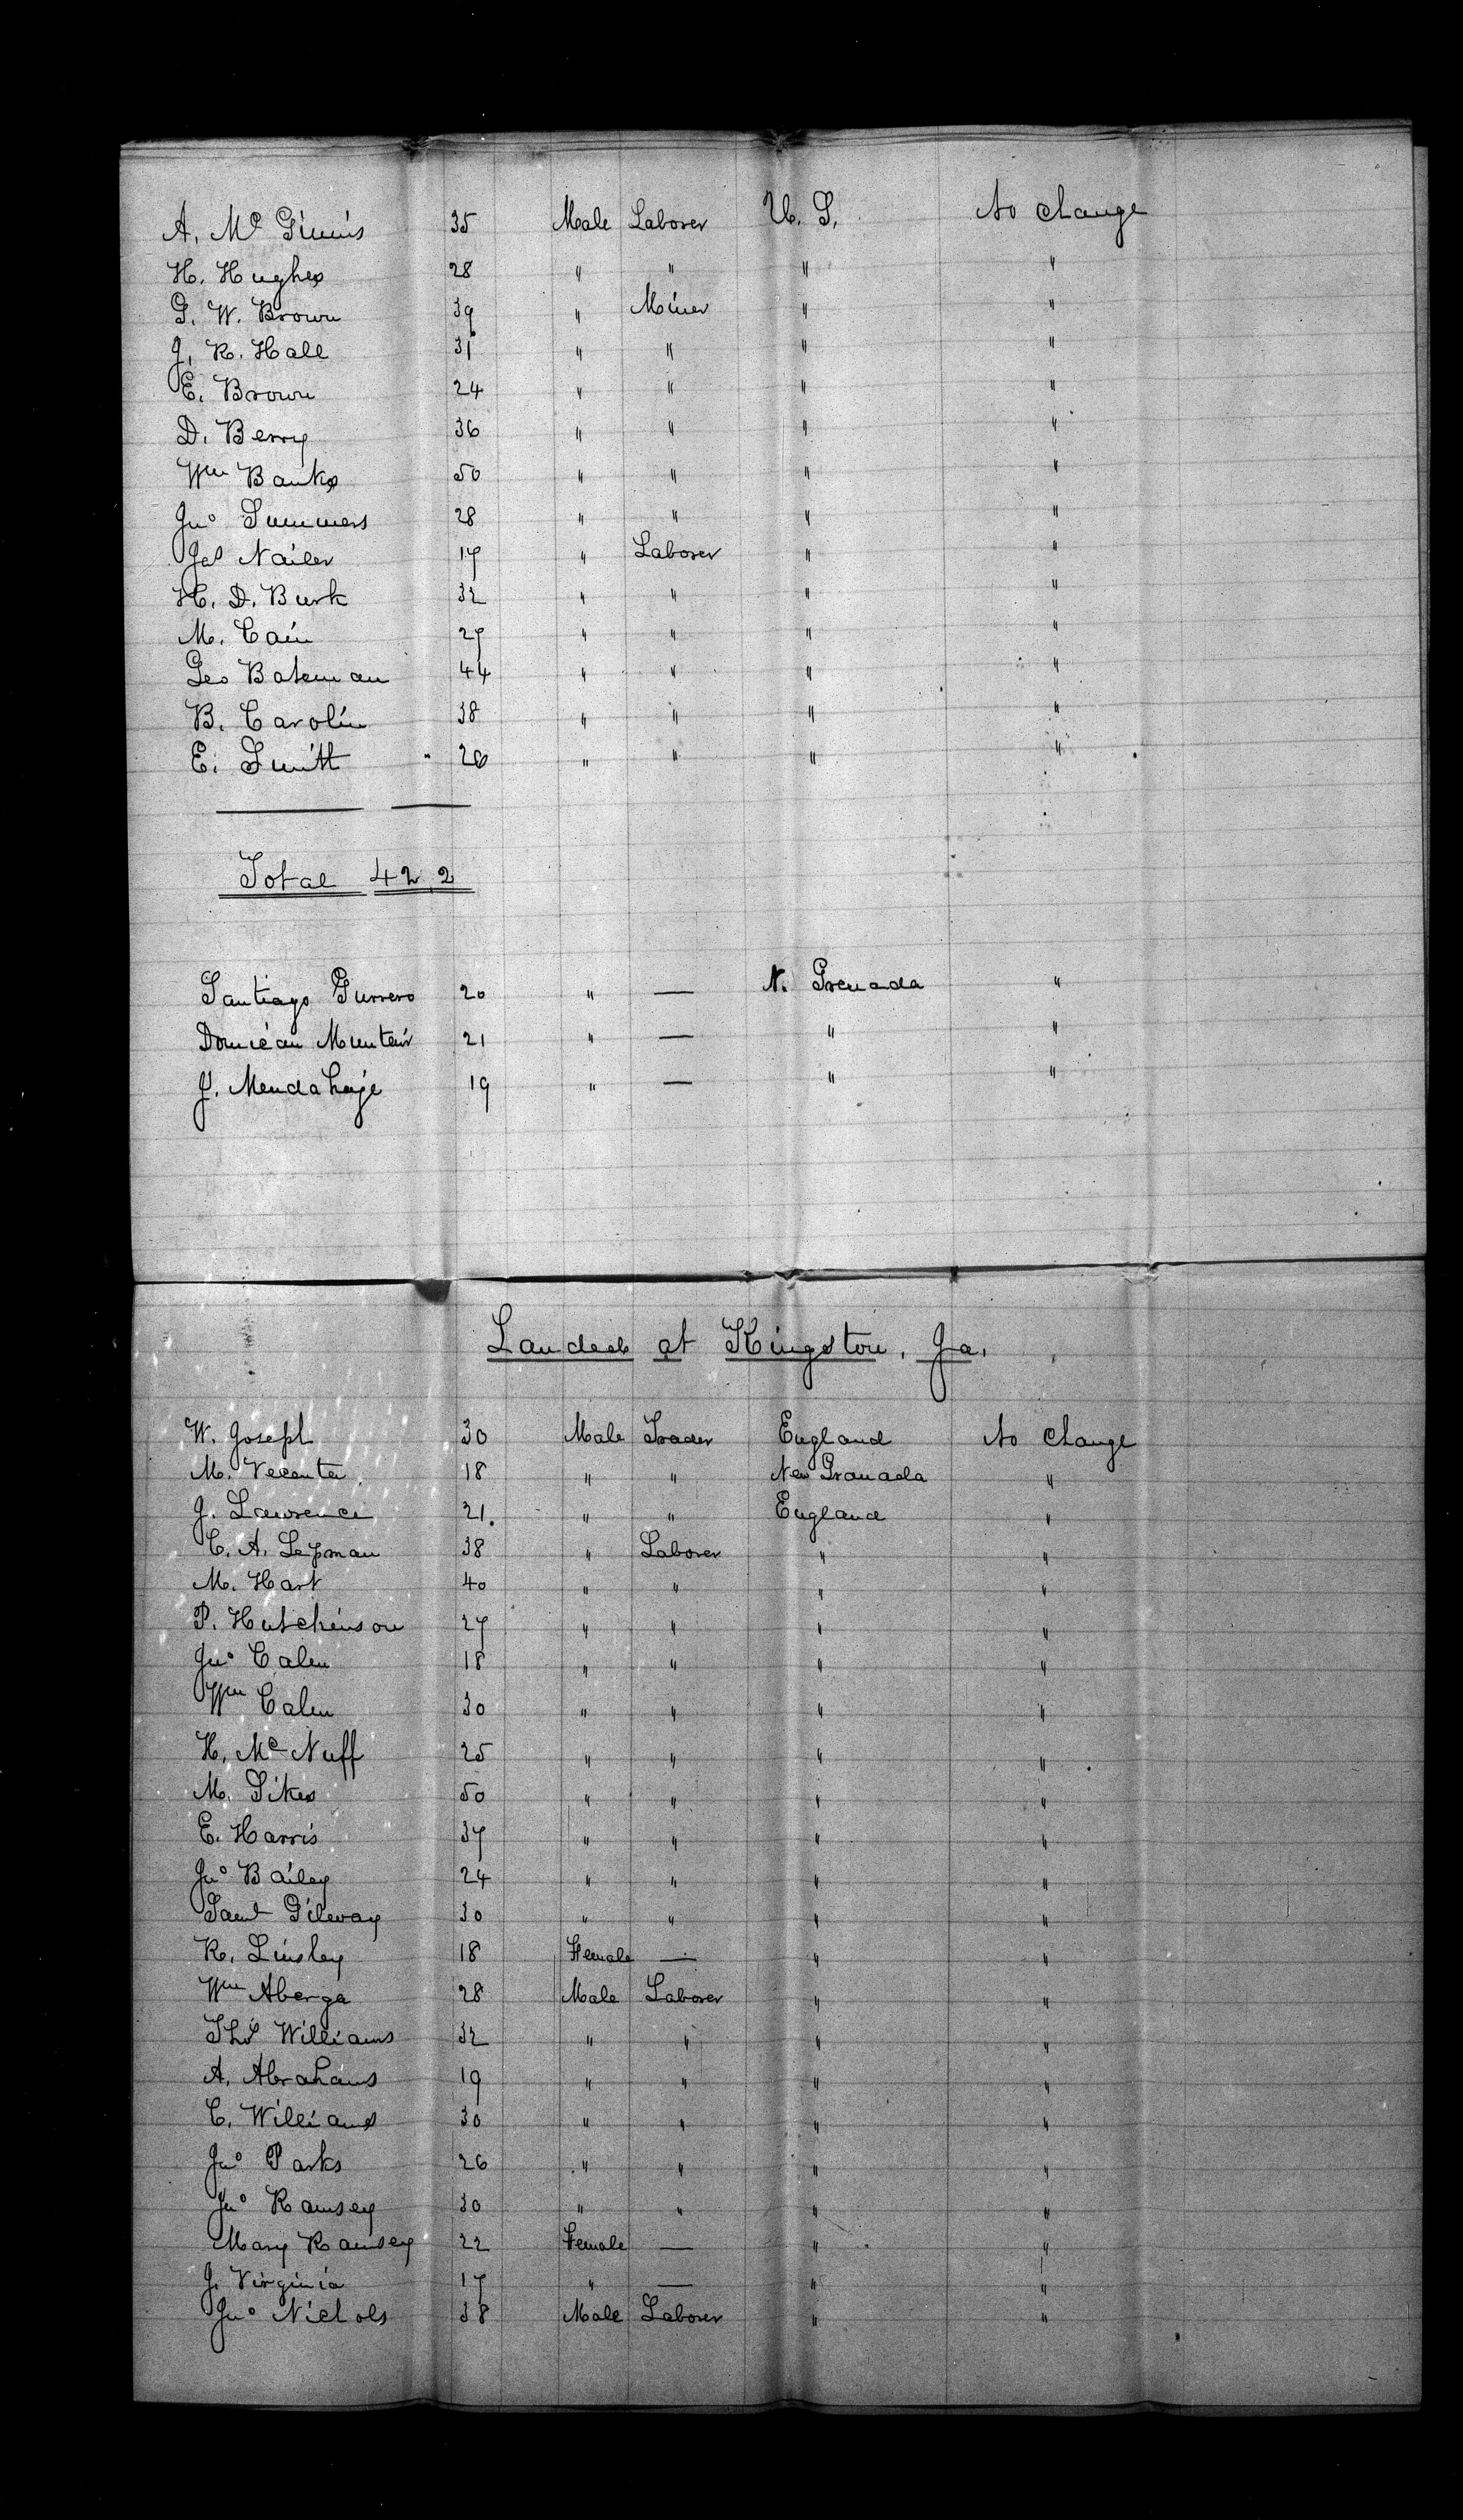 A. Mc Ginnis 35 Male Laborer U. S. No change
H. Hughes 28 " " " "
G. W. Brown 39 " Miner " "
J. R. Hall 31 " " " "
E. Brown 24 " " " "
D. Berry 36 " " " "
Wm Banks 50 " " " "
Jno Summers 28 " " " "
Jas Nailer 17 " Laborer " "
H. D. Burk 32 " " " "
M. Cain 27 " " " "
Geo Bateman 44 " " " "
B. Carolin 38 " " " "
E. Smitt 26 " " " "
Total 422
Santiago Gurrero 20 " — N. Grenada "
21 " — " "
J. 19 " — " "
Landed at Kingston, Ja.
W. Joseph 30 Male Trader England No change
M. 18 " " New Granada "
J. Lawrence 21. " " England "
C. A. Lepman 38 " Laborer " "
M. Hart 40 " " " "
P. Hutchinson 27 " " " "
Jno Calen 18 " " " "
Wm Calen 30 " " " "
H. Mc Nuff 25 " " " "
M. Sikes 50 " " " "
E. Harris 37 " " " "
Jno Bailey 24 " " " "
Saml Gilway 30 " " " "
R. Linsley 18 Female — " "
Wm Aberga 28 Male Laborer " "
Thos Williams 32 " " " "
A. Abrahams 19 " " " "
C. Williams 30 " " " "
Jno Parks 26 " " " "
Jno Ramsey 30 " " " "
Mary Ramsey 22 Female — " "
J. Virginia 17 " — " "
Jno Nichols 38 Male Laborer " "